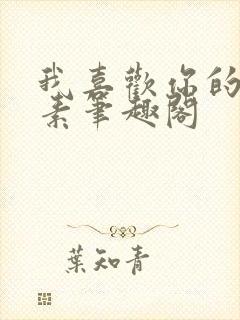 我喜歡你的
素筆趣閣
葉知青